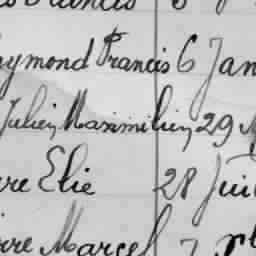 Francis 6
aymond Francis 6 Jan
Julien Maximilien 29 M
rre Elie 28 Juil
rre Marcel 7